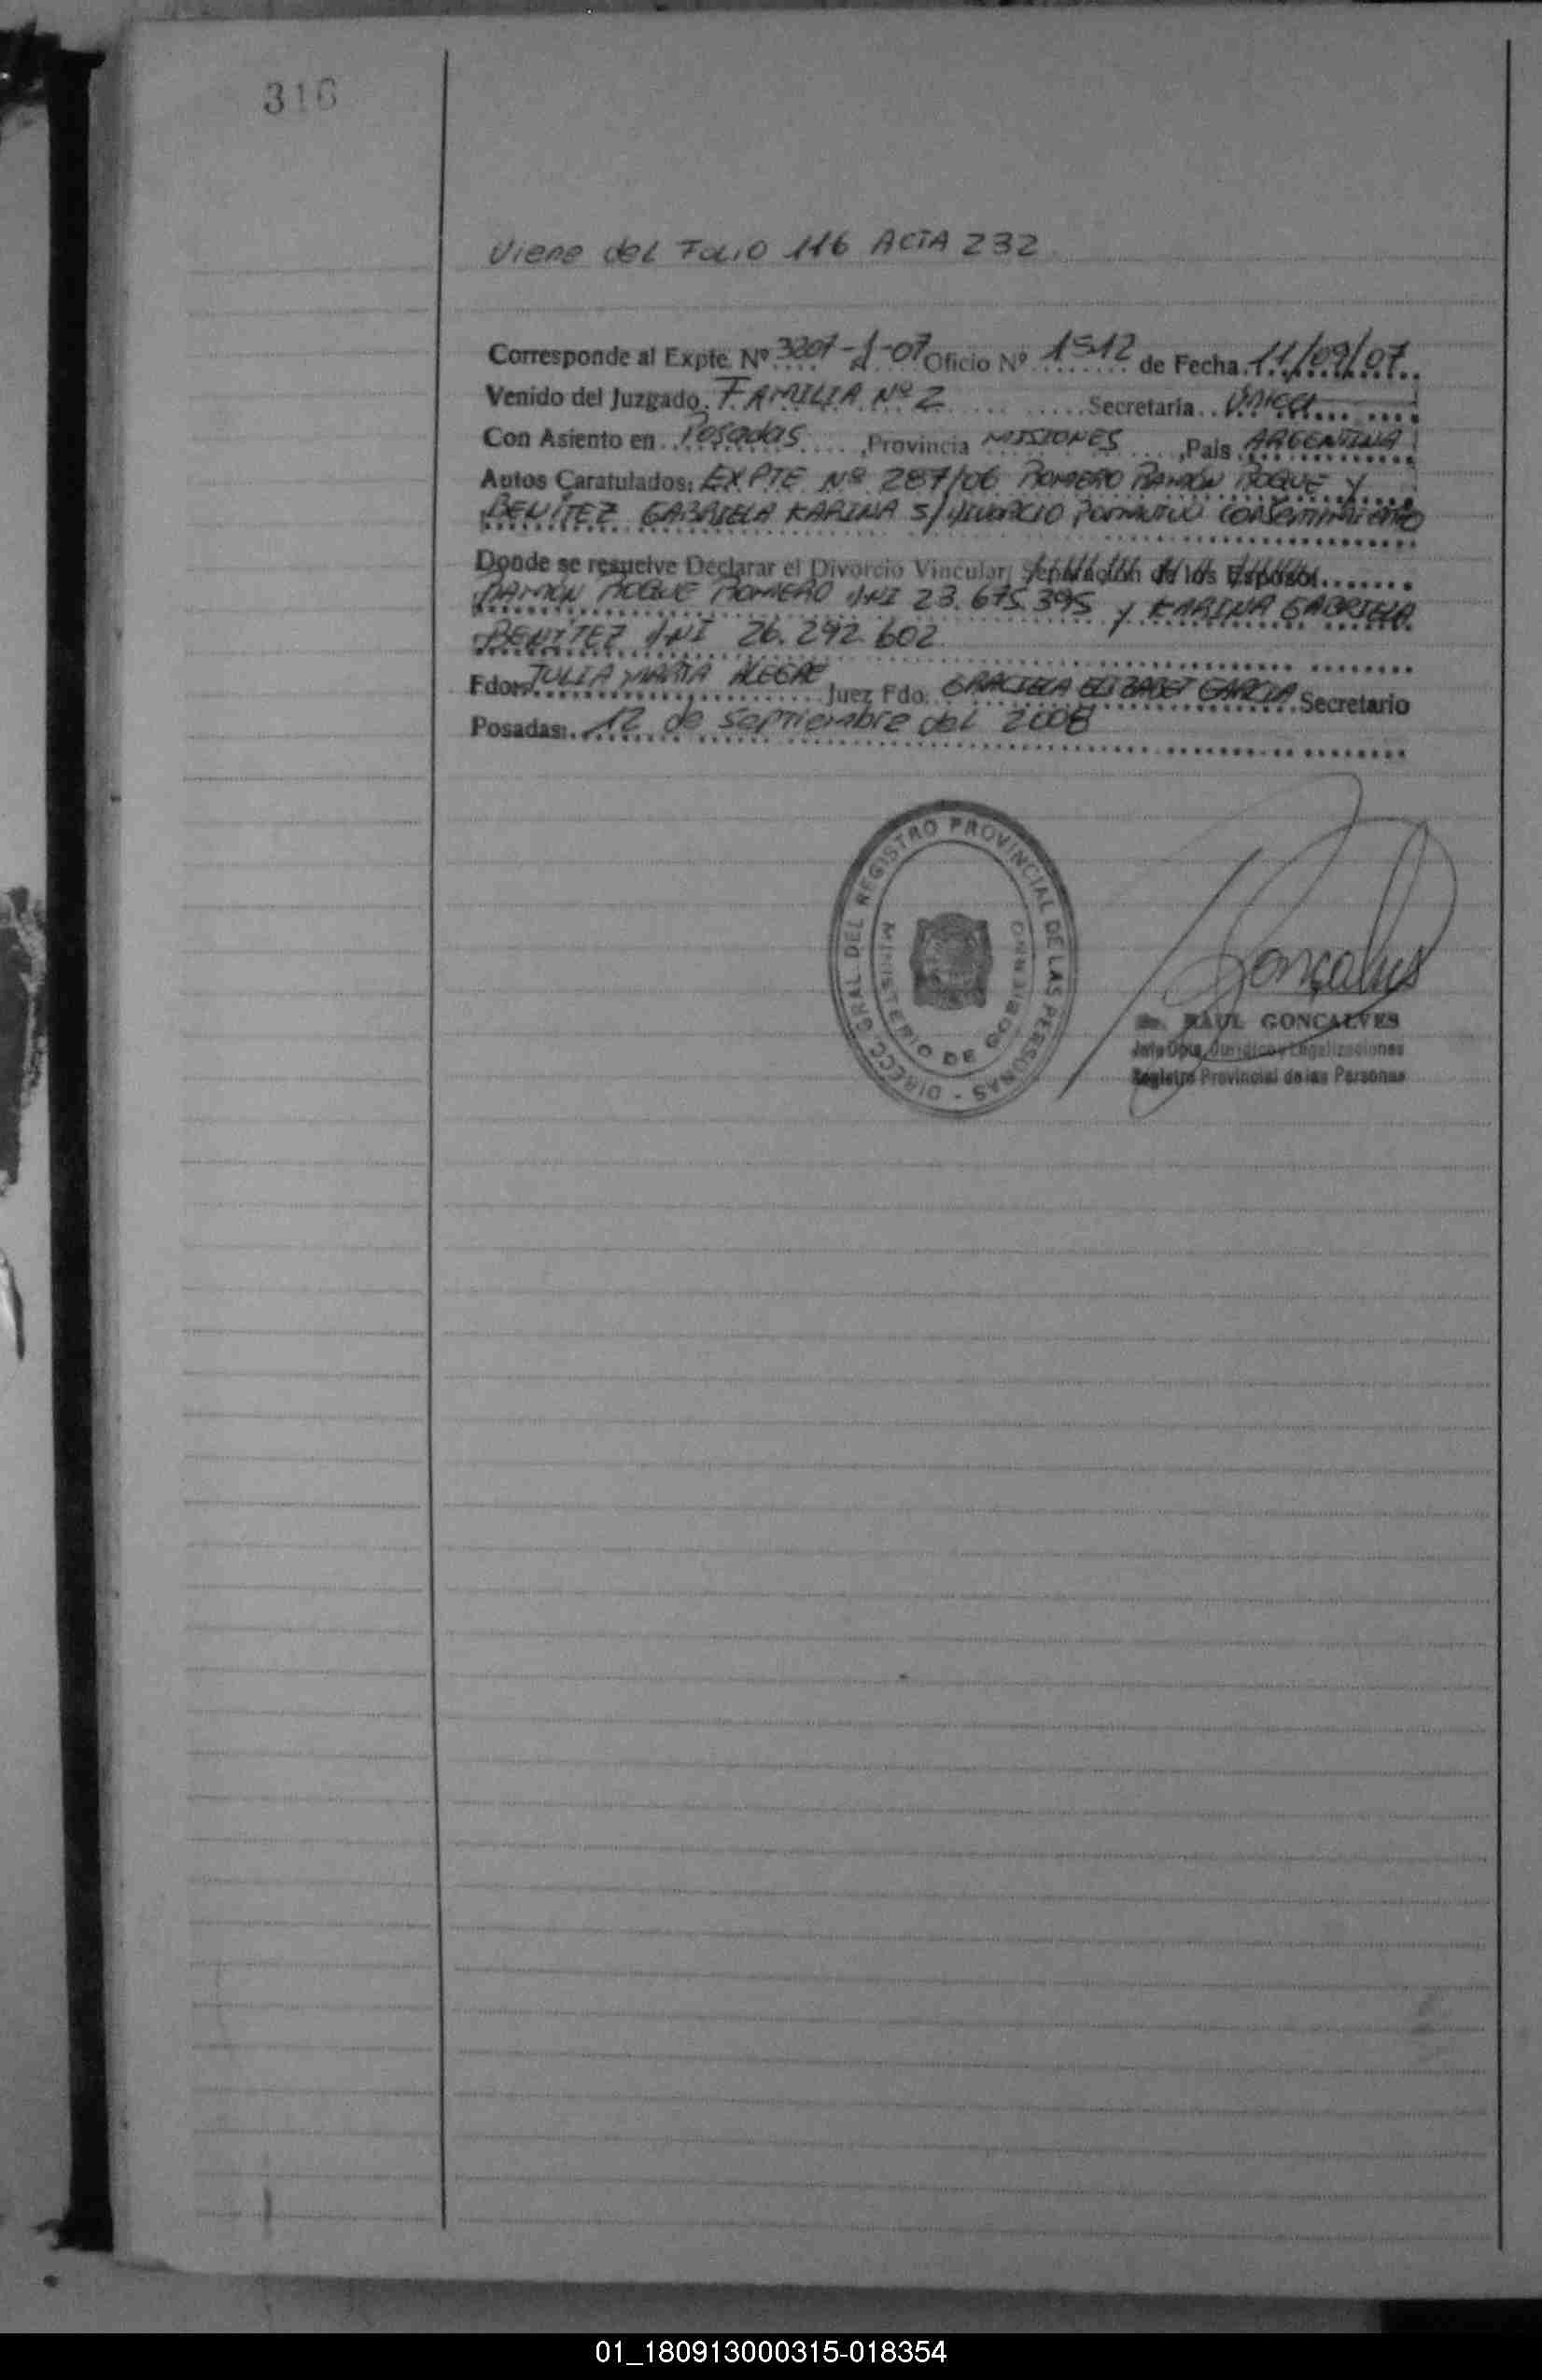 316
Viene del Folio 116 ACTA 232
Corresponde al Expte. Nº 3207-1-07 Oficio Nº 1512 de Fecha 11/09/07
Venido del Juzgado. FAMILIA Nº 2 Secretaría.. ÚNICA
Con Asiento en.. Posadas ,Provincia MISIONES ,Pais ARGENTINA
Autos Caratulados: EXPTE Nº 287/06 ROMERO RAMÓN ROQUE Y
BENÍTEZ GABRIELA KARINA S/ DIVORCIO POR MUTUO CONSENTIMIENTO
Donde se resuelve Declarar el Divorcio Vincular, Separación de los Esposos
RAMÓN ROQUE ROMERO DNI 23.675.395 y KARINA GABRIELA
BENÍTEZ DNI 26.292.602
Fdo: JULIA MARTA ALEGRE Juez Fdo. GRACIELA ELIZABET GARCIA Secretario
Posadas: 12 de septiembre del 2008
DIRECC. GRAL DEL REGISTRO PROVINCIAL DE LAS PERSONAS -
MINISTERIO DE GOBIERNO
Gonçalves
RAUL GONCALVES
Jefe Dpto. Jurídico y Legalizaciones
Registro Provincial de las Personas
01_180913000315-018354